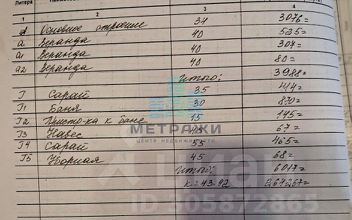 Литера
1 2 3 4
а Основное строение 34 3076=
а Веранда 40 535=
а1 Веранда 40 304=
а2 Веранда 40 80=
Итого: 3988=
Г Сарай 35 444=
Г1 Баня 30 820=
Г2 Пристр-ка к бане 15 145=
Г3 Навес 67=
Г4 Сарай 55 465=
Г5 Уборная 45 68=
Итого: 6017=
к: 43.92 264267=
МЕТРАЖИ
ЦЕНТР НЕДВИЖИМОСТИ
ID 105872865